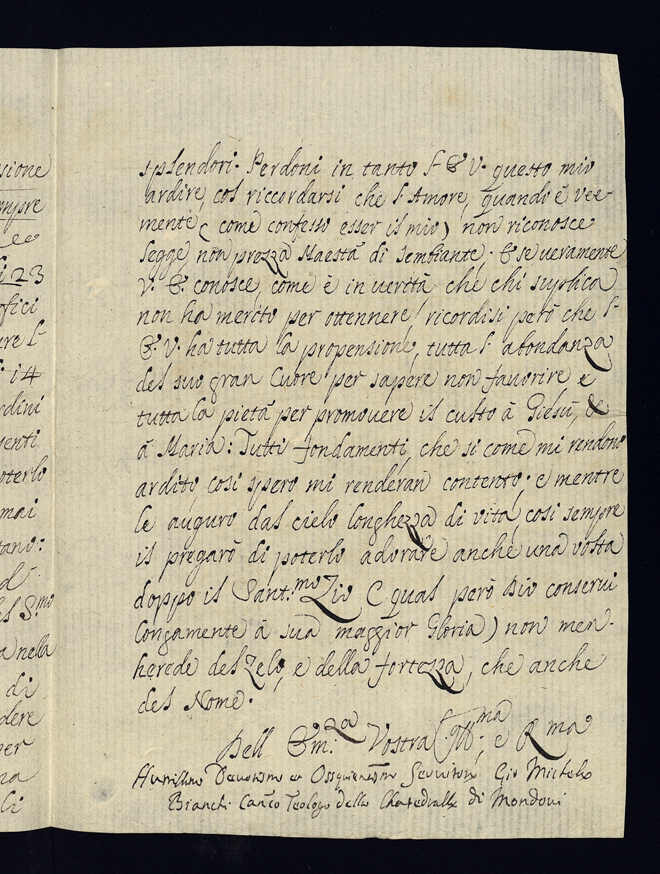 splendori. Perdoni in tanto l' E. V. questo mio
ardire, col riccordarsi che l' Amore, quando è vee-
mente ( come confesso esser il mio ) non riconosce
legge, non prezza Maestà di sembiante; E se ueramente
V. E. conosce, come è in uerità che chi suplica
non ha merito per ottennere, ricordisi però che l'
E. V. ha tutta la propensione, tutta l' abondanza
del suo gran Cuore per sapere non favorire e
tutta la pietà per promouere il culto à Giesù, &
à Maria: Tutti fondamenti, che si come mi rendono
ardito, cosi spero mi renderan contento: e mentre
le auguro dal cielo longhezza di vita, cosi sempre
il pregarò di poterlo adorare anche una volta
doppo il Sant.mo Zio ( qual però Dio conserui
longamente à sua maggior Gloria ) non men
herede del Zelo, e della fortezza, che anche
del Nome.
Dell' Em.za Vostra Ill.ma, e R.ma
Humilmo Deuotismo et Ossequientism Seruitore Gio Michele
Bianchi Canco Teologo della Chatedralle di Mondoui
sione
empre
23
ofici
ure l'
14
rdini
senti
poterlo
mai
tano:
d'
il S.mo
a nella
di
dere
per
na
li